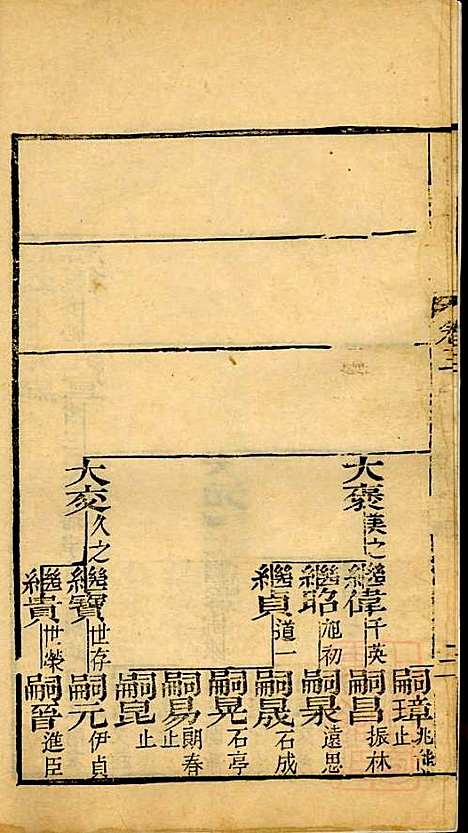 卷三
二
大褒 漢之
大交 久之
繼偉 千英
繼昭 旭初
繼貞 道一
繼寶 世存
繼貴 世榮
嗣璋 止
嗣昌 振林
嗣杲 遠思
嗣晟 石成
嗣晃 石亭
嗣易 朗春 止
嗣昆 止
嗣元 伊貞
嗣晉 進臣